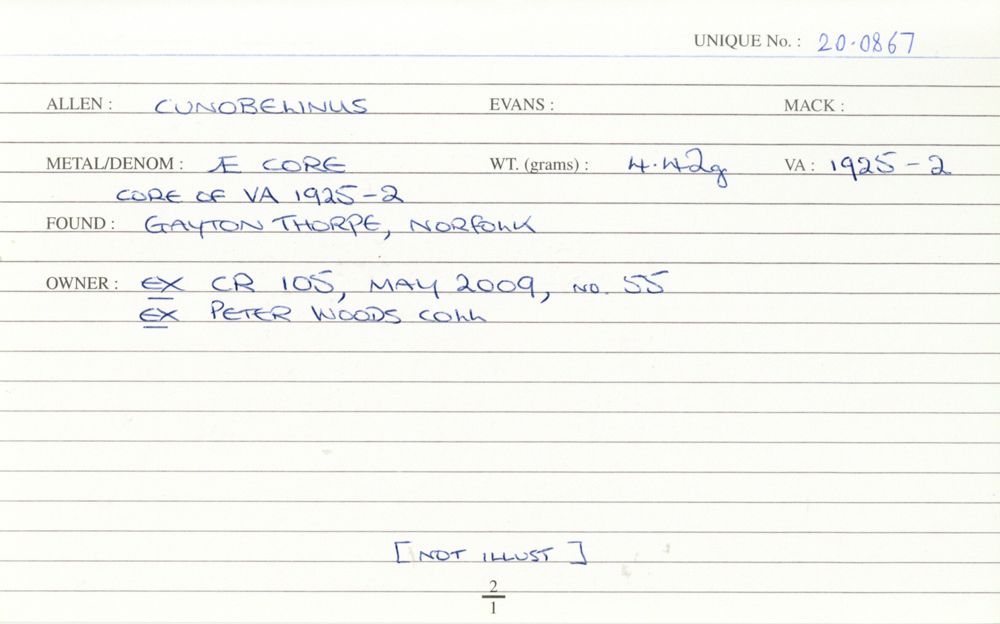 UNIQUE No. : 20-0867
ALLEN : CUNOBELINUS EVANS : MACK :
METAL/DENOM : Æ CORE WT. (grams) : 4.42g VA : 1925-2
CORE OF VA 1925-2
FOUND : GAYTON THORPE, NORFOLK
OWNER : EX CR 105, MAY 2009, NO. 55
EX PETER WOODS COLL
[NOT ILLUST]
2
1